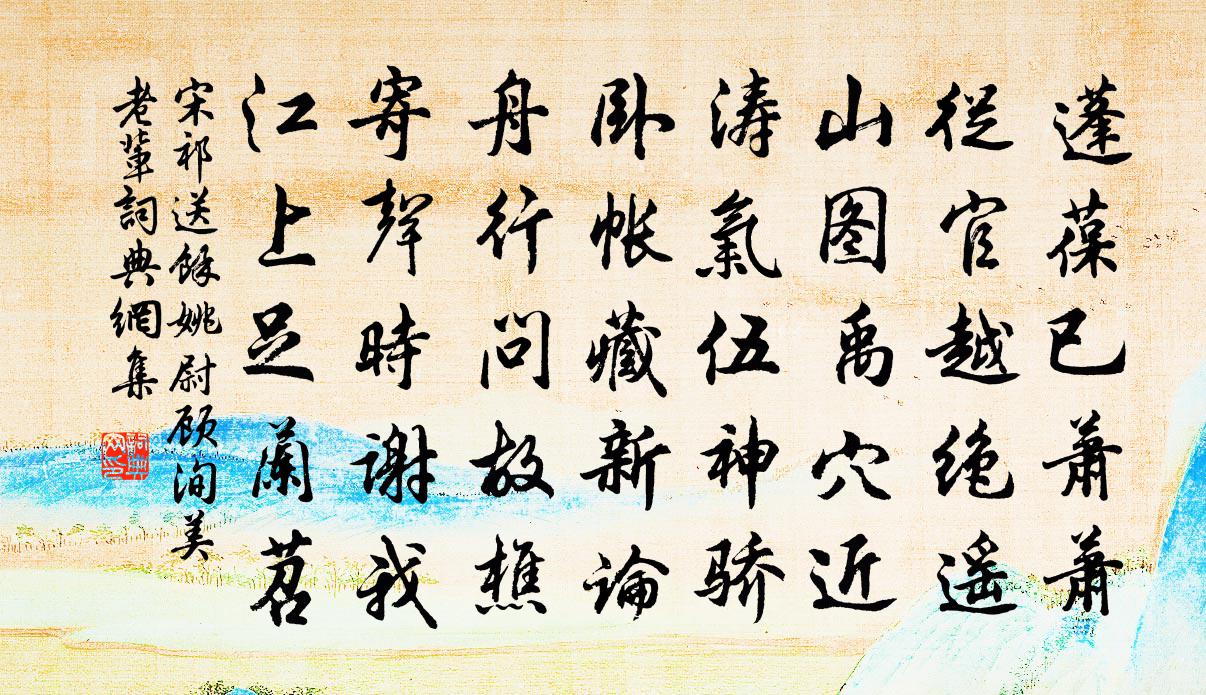 蓬葆已萧萧
從官越绝遥
山图禹穴近
涛氣伍神骄
卧帐藏新論
舟行问故樵
寄聲時谢我
江上足蘭苕
宋祁送餘姚尉顾洵美
老輩詞典網集